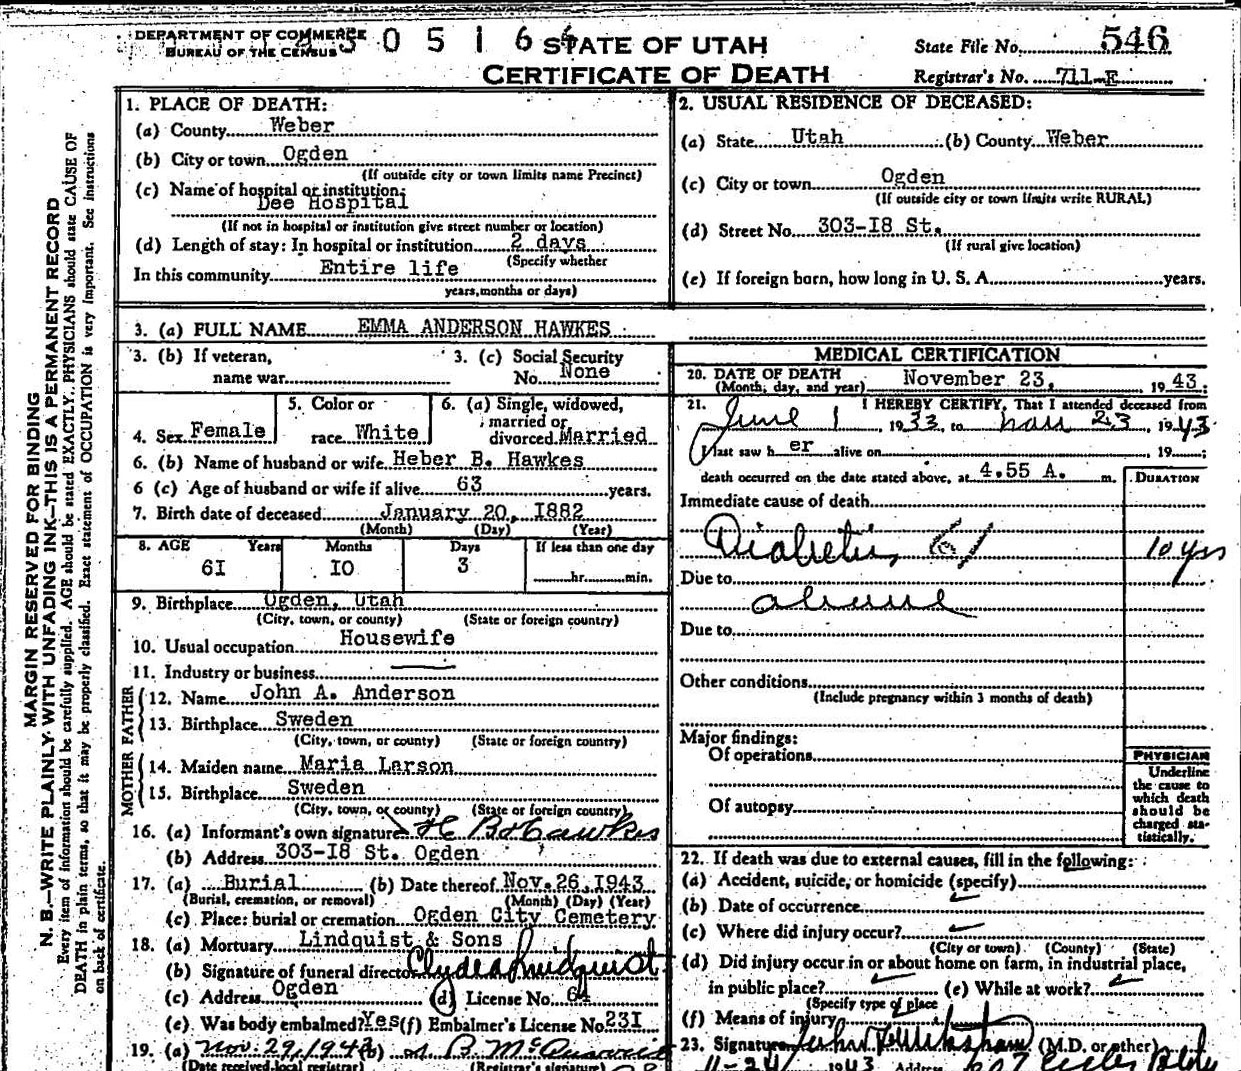 DEPARTMENT OF COMMERCE
BUREAU OF THE CENSUS
3 0 5 1 6
STATE OF UTAH
CERTIFICATE OF DEATH
State File No. 546
Registrar's No. 711-E
MARGIN RESERVED FOR BINDING
N. B.—WRITE PLAINLY WITH UNFADING INK—THIS IS A PERMANENT RECORD
Every item of information should be carefully supplied. AGE should be stated EXACTLY. PHYSICIANS should state CAUSE OF
DEATH in plain terms, so that it may be properly classified. Exact statement of OCCUPATION is very important. See instructions
on back of certificate.
1. PLACE OF DEATH:
(a) County Weber
(b) City or town Ogden
(If outside city or town limits name Precinct)
(c) Name of hospital or institution:
Dee Hospital
(If not in hospital or institution give street number or location)
(d) Length of stay: In hospital or institution 2 days
(Specify whether
In this community Entire life
years, months or days)
2. USUAL RESIDENCE OF DECEASED:
(a) State Utah (b) County Weber
(c) City or town Ogden
(If outside city or town limits write RURAL)
(d) Street No. 303-18 St.
(If rural give location)
(e) If foreign born, how long in U. S. A. years.
3. (a) FULL NAME EMMA ANDERSON HAWKES
3. (b) If veteran,
name war
3. (c) Social Security
No. None
4. Sex Female
5. Color or
race White
6. (a) Single, widowed,
married or
divorced Married
6. (b) Name of husband or wife Heber B. Hawkes
6 (c) Age of husband or wife if alive 63 years.
7. Birth date of deceased January 20, 1882
(Month) (Day) (Year)
8. AGE Years Months Days If less than one day
61 10 3 hr. min.
9. Birthplace Ogden, Utah
(City, town, or county) (State or foreign country)
10. Usual occupation Housewife
11. Industry or business
FATHER
12. Name John A. Anderson
13. Birthplace Sweden
(City, town, or county) (State or foreign country)
MOTHER
14. Maiden name Maria Larson
15. Birthplace Sweden
(City, town, or county) (State or foreign country)
16. (a) Informant's own signature H B Hawkes
(b) Address 303-18 St. Ogden
17. (a) Burial (b) Date thereof Nov. 26, 1943
(Burial, cremation, or removal) (Month) (Day) (Year)
(c) Place: burial or cremation Ogden City Cemetery
18. (a) Mortuary Lindquist & Sons
(b) Signature of funeral director Clyde Lindquist
(c) Address Ogden (d) License No. 64
(e) Was body embalmed? Yes (f) Embalmer's License No. 231
19. (a) Nov. 29, 1943 (b)
(Date received local registrar) (Registrar's signature)
MEDICAL CERTIFICATION
20. DATE OF DEATH
(Month, day, and year) November 23, 1943;
21. I HEREBY CERTIFY, That I attended deceased from
June 1, 1933, to Nov 23, 1943
I last saw her alive on 19
death occurred on the date stated above, at 4.55 A. m.
DURATION
Immediate cause of death
Diabetis 61 10 yrs
Due to
Due to
Other conditions
(Include pregnancy within 3 months of death)
Major findings:
Of operations
Of autopsy
PHYSICIAN
Underline
the cause to
which death
should be
charged sta-
tistically.
22. If death was due to external causes, fill in the following:
(a) Accident, suicide, or homicide (specify)
(b) Date of occurrence
(c) Where did injury occur?
(City or town) (County) (State)
(d) Did injury occur in or about home on farm, in industrial place,
in public place? (e) While at work?
(Specify type of place
(f) Means of injury
23. Signature (M.D. or other)
11-24 1943 Address